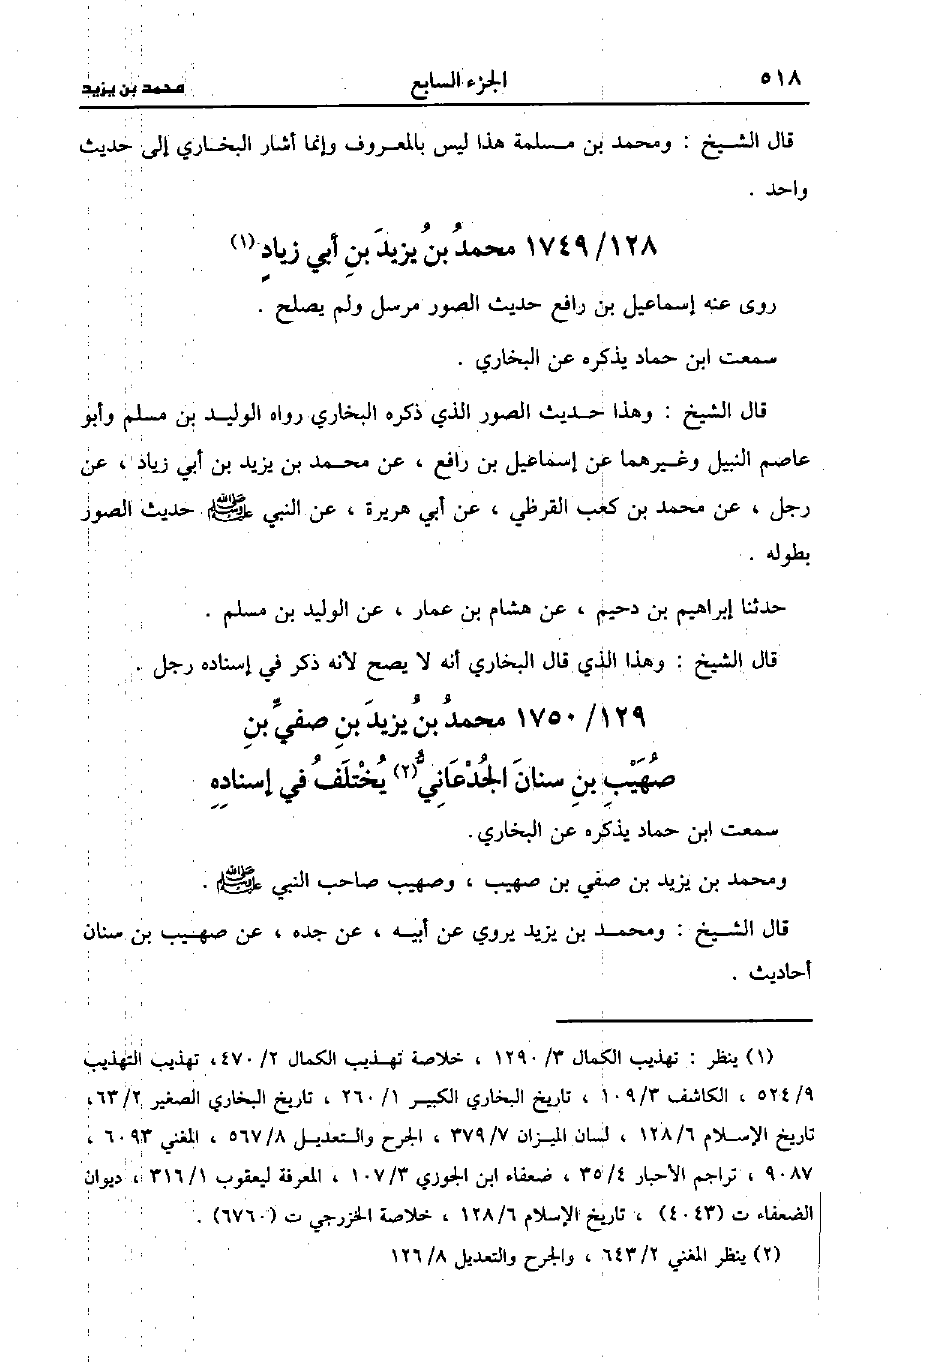 ٥١٨ الجزء السابع محمد بن يزيد
قال الشيخ : ومحمد بن مسلمة هذا ليس بالمعروف وإنما أشار البخاري إلى حديث
واحد .
١٧٤٩/١٢٨ محمدُ بنُ يزيدَ بنِ أبي زيادٍ(١)
روى عنه إسماعيل بن رافع حديث الصور مرسل ولم يصلح .
سمعت ابن حماد يذكره عن البخاري .
قال الشيخ : وهذا حديث الصور الذي ذكره البخاري رواه الوليد بن مسلم وأبو
عاصم النبيل وغيرهما عن إسماعيل بن رافع ، عن محمد بن يزيد بن أبي زياد ، عن
رجل ، عن محمد بن كعب القرظي ، عن أبي هريرة ، عن النبي ﷺ حديث الصور
بطوله .
حدثنا إبراهيم بن دحيم ، عن هشام بن عمار ، عن الوليد بن مسلم .
قال الشيخ : وهذا الذي قال البخاري أنه لا يصح لأنه ذكر في إسناده رجل .
١٧٥٠/١٢٩ محمدُ بنُ يزيدَ بنِ صفيِّ بنِ
صُهَيْبِ بنِ سنانَ الجُدْعَانِيُّ(٢) يُخْتَلَفُ في إسنادِهِ
سمعت ابن حماد يذكره عن البخاري.
ومحمد بن يزيد بن صفي بن صهيب ، وصهيب صاحب النبي ﷺ .
قال الشيخ : ومحمد بن يزيد يروي عن أبيه ، عن جده ، عن صهيب بن سنان
أحاديث .
(١) ينظر : تهذيب الكمال ١٢٩٠/٣ ، خلاصة تهذيب الكمال ٤٧٠/٢، تهذيب التهذيب
٥٢٤/٩ ، الكاشف ١٠٩/٣ ، تاريخ البخاري الكبير ٢٦٠/١ ، تاريخ البخاري الصغير ٦٣/٢،
تاريخ الإسلام ١٢٨/٦ ، لسان الميزان ٣٧٩/٧ ، الجرح والتعديل ٥٦٧/٨ ، المغني ٦٠٩٣ ،
٩٠٨٧ ، تراجم الأحبار ٣٥/٤ ، ضعفاء ابن الجوزي ١٠٧/٣ ، المعرفة ليعقوب ٣١٦/١ ، ديوان
الضعفاء ت (٤٠٤٣) ، تاريخ الإسلام ١٢٨/٦ ، خلاصة الخزرجي ت (٦٧٦٠) .
(٢) ينظر المغني ٦٤٣/٢ ، والجرح والتعديل ١٢٦/٨